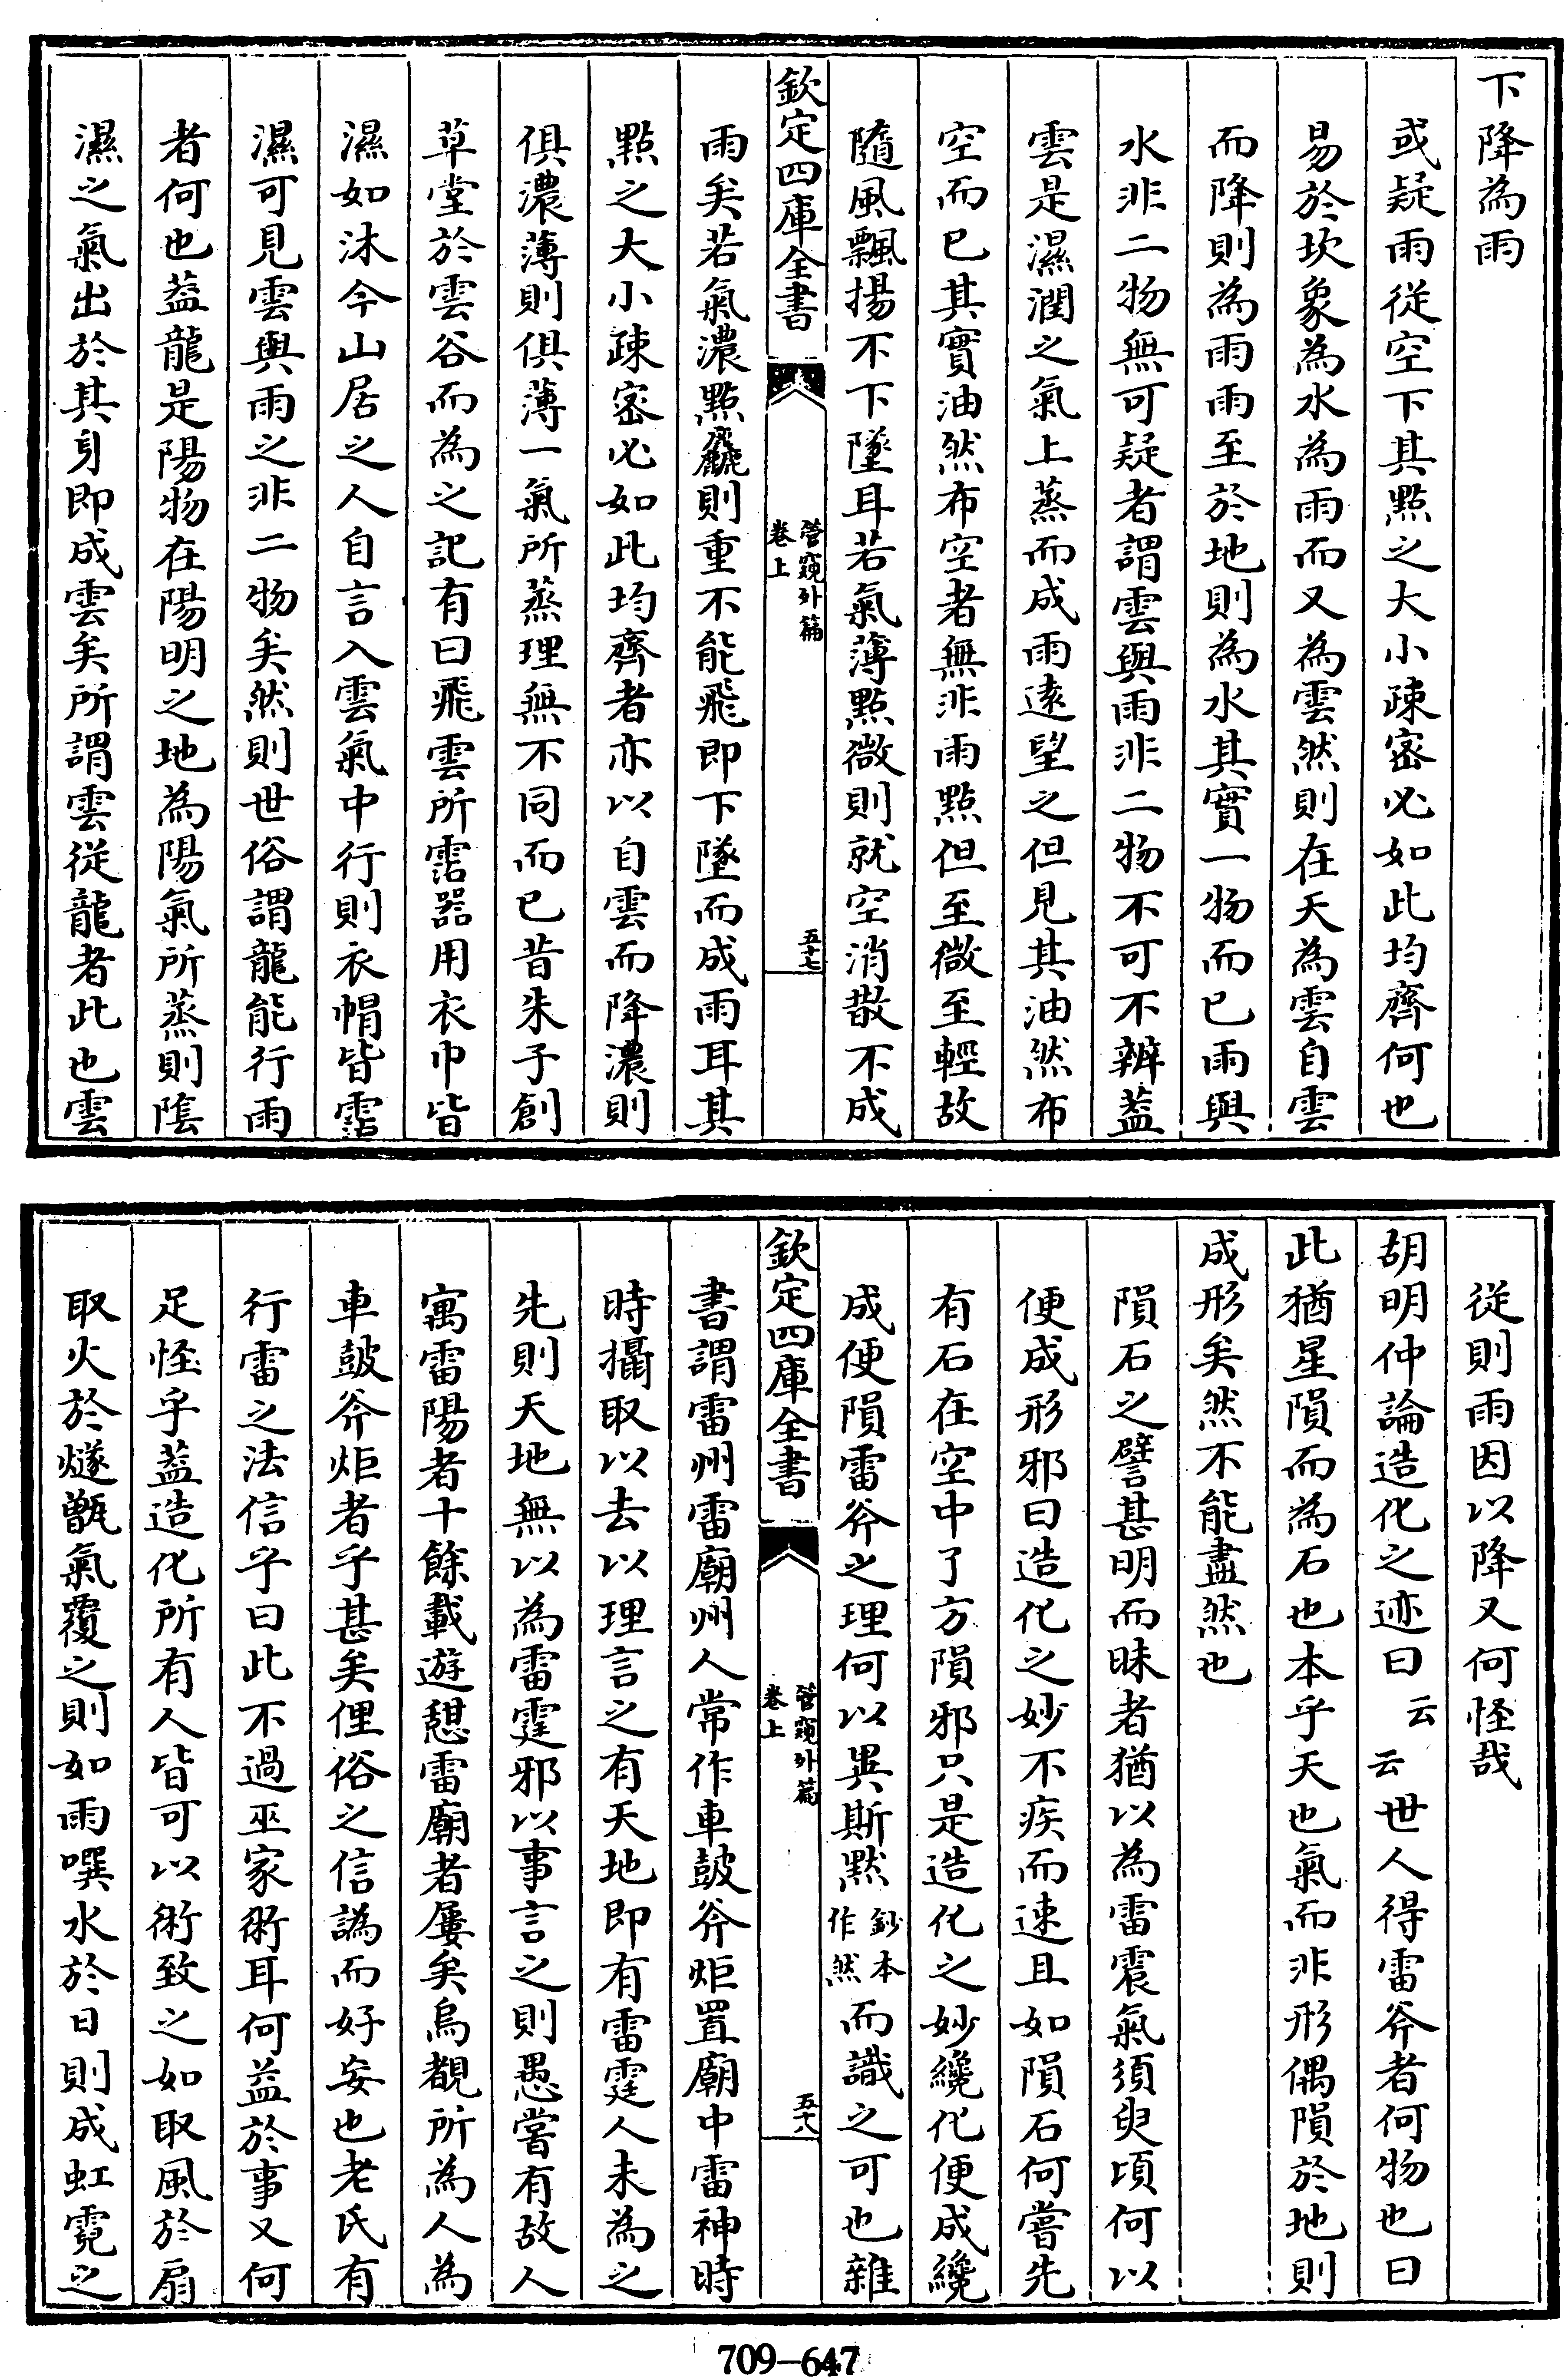 下降為雨
或疑雨從空下其點之大小疎密必如此均齊何也
易於坎象為水為雨而又為雲然則在天為雲自雲
而降則為雨雨至於地則為水其實一物而已雨與
水非二物無可疑者謂雲與雨非二物不可不辨葢
雲是濕潤之氣上蒸而成雨遠望之但見其油然布
空而已其實油然布空者無非雨點但至微至輕故
隨風飄揚不下墜耳若氣薄點微則就空消散不成
欽定四庫全書
管窺外篇
卷上
五十七
雨矣若氣濃點麤則重不能飛即下墜而成雨耳其
點之大小疎密必如此均齊者亦以自雲而降濃則
俱濃薄則俱薄一氣所蒸理無不同而已昔朱子創
草堂於雲谷而為之記有曰飛雲所霑器用衣巾皆
濕如沐今山居之人自言入雲氣中行則衣帽皆霑
濕可見雲與雨之非二物矣然則世俗謂龍能行雨
者何也葢龍是陽物在陽明之地為陽氣所蒸則陰
濕之氣出於其身即成雲矣所謂雲從龍者此也雲
從則雨因以降又何怪哉
胡明仲論造化之迹曰云云世人得雷斧者何物也曰
此猶星隕而為石也本乎天也氣而非形偶隕於地則
成形矣然不能盡然也
隕石之譬甚明而昧者猶以為雷震氣須臾頃何以
便成形邪曰造化之妙不疾而速且如隕石何嘗先
有石在空中了方隕邪只是造化之妙纔化便成纔
成便隕雷斧之理何以異斯默鈔本作然而識之可也雜
欽定四庫全書
管窺外篇
卷上
五十八
書謂雷州雷廟州人常作車鼓斧炬置廟中雷神時
時攝取以去以理言之有天地即有雷霆人未為之
先則天地無以為雷霆邪以事言之則愚嘗有故人
寓雷陽者十餘載遊憇雷廟者屢矣烏覩所為人為
車鼓斧炬者乎甚矣俚俗之信譌而好妄也老氏有
行雷之法信乎曰此不過巫家術耳何益於事又何
足怪乎葢造化所有人皆可以術致之如取風於扇
取火於燧甑氣覆之則如雨噀水於日則成虹霓之
709—647